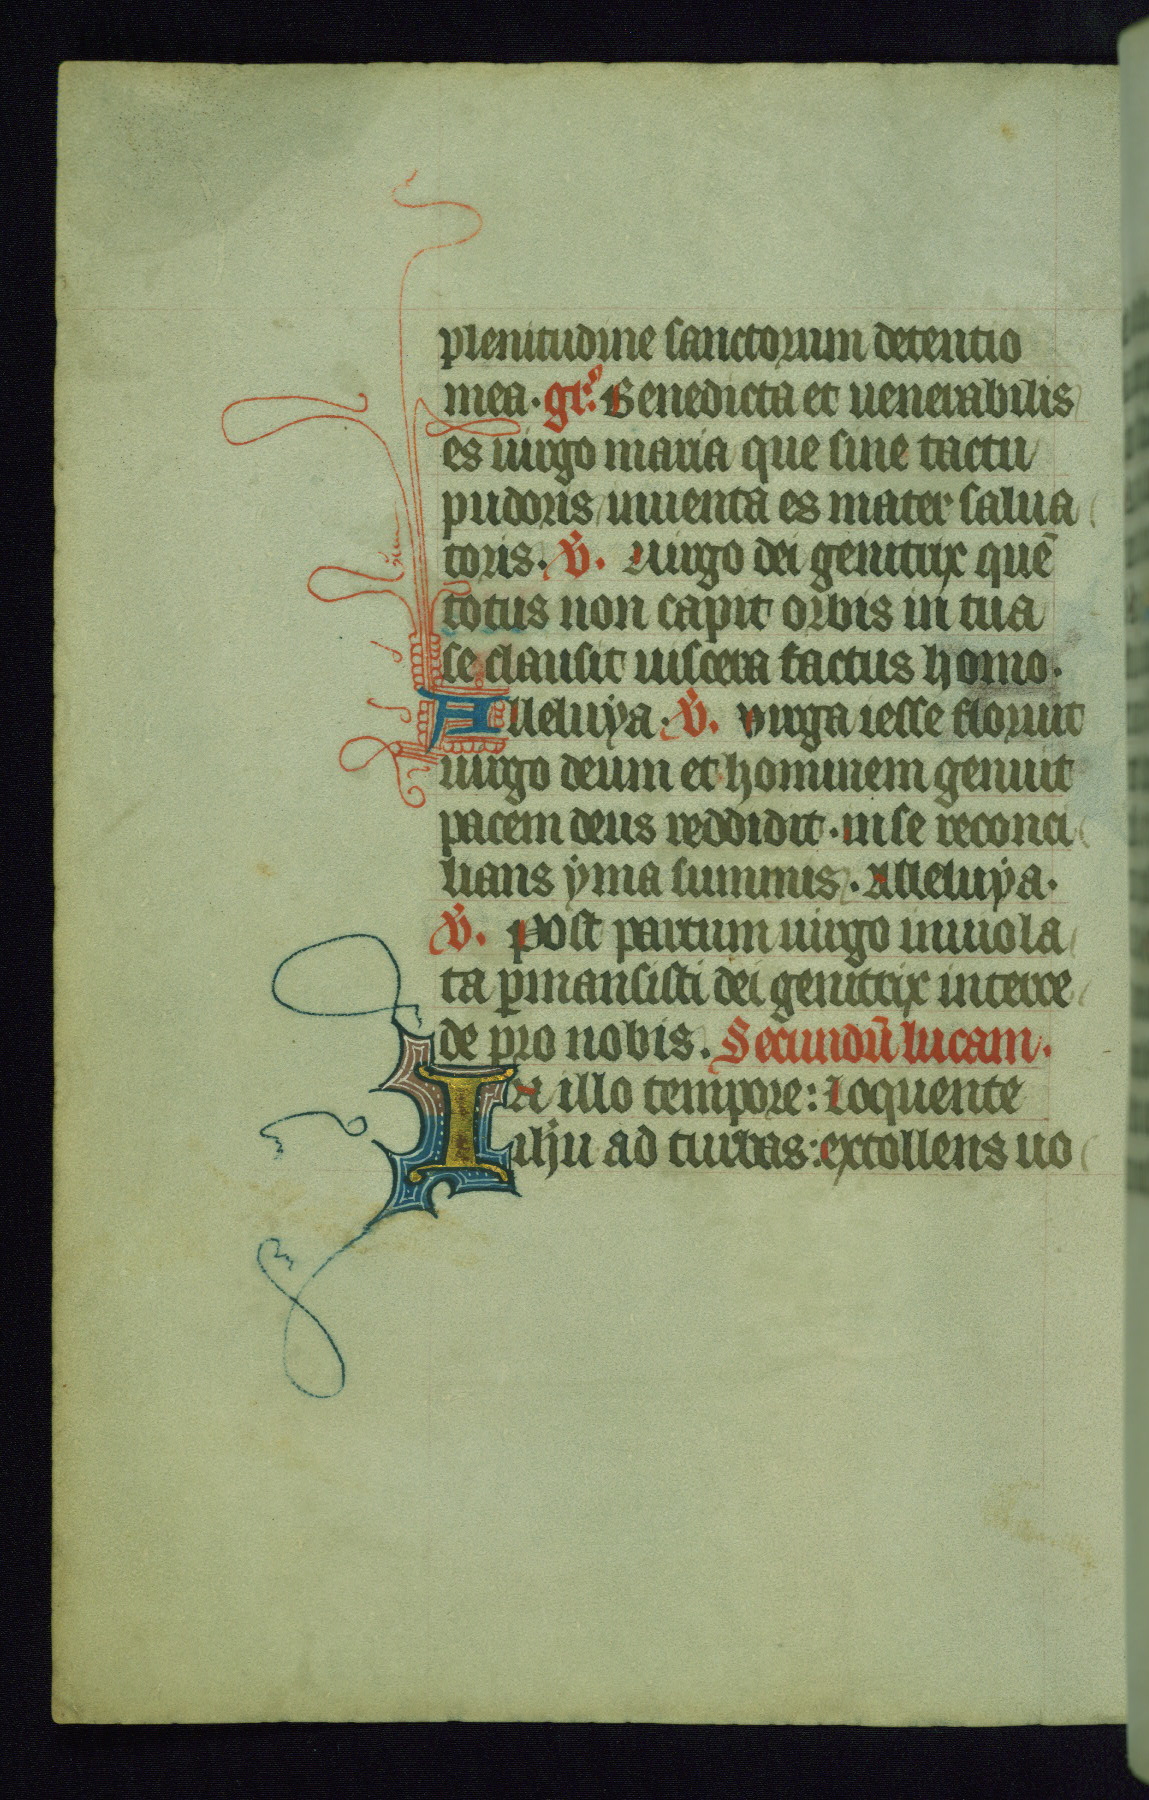 plenitudine sanctorum detentio
mea. gr̃o Benedicta et uenerabilis
es uirgo maria que sine tactu
pudoris inuenta es mater salua
toris. v̄. Uirgo dei genitrix quē
totus non capit orbis in tua
se clausit uiscera factus homo.
Alleluya. v̄. Virga iesse floruit
uirgo deum et hominem genuit
pacem deus reddidit. in se reconci
lians yma summis. Alleluya.
v̄. Post partum uirgo inuiola
ta ꝑmansisti dei genitrix interce
de pro nobis. Secundū lucam.
In illo tempore: Loquente
ihu ad turbas: extollens uo